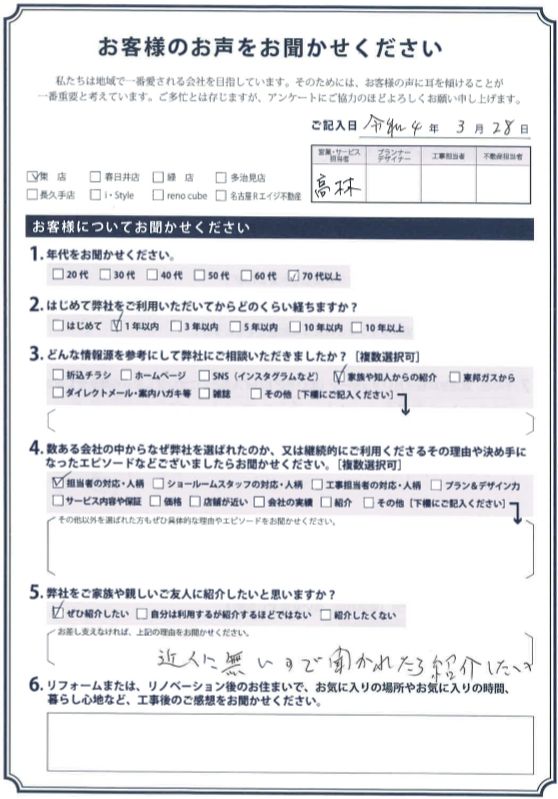 お客様のお声をお聞かせください
私たちは地域で一番愛される会社を目指しています。そのためには、お客様の声に耳を傾けることが
一番重要と考えています。ご多忙とは存じますが、アンケートにご協力のほどよろしくお願い申し上げます。
ご記入日 令和4年 3月 28日
営業・サービス担当者 プランナーデザイナー 工事担当者 不動産担当者
高林
☑東 店 □春日井店 □緑 店 □多治見店
□長久手店 □i・Style □reno cube □名古屋Rエイジ不動産
お客様についてお聞かせください
1. 年代をお聞かせください。
□20代 □30代 □40代 □50代 □60代 ☑70代以上
2. はじめて弊社をご利用いただいてからどのくらい経ちますか？
□はじめて ☑1年以内 □3年以内 □5年以内 □10年以内 □10年以上
3. どんな情報源を参考にして弊社にご相談いただきましたか？［複数選択可］
□折込チラシ □ホームページ □SNS（インスタグラムなど） ☑家族や知人からの紹介 □東邦ガスから
□ダイレクトメール・案内ハガキ等 □雑誌 □その他［下欄にご記入ください］
4. 数ある会社の中からなぜ弊社を選ばれたのか、又は継続的にご利用くださるその理由や決め手に
なったエピソードなどございましたらお聞かせください。［複数選択可］
☑担当者の対応・人柄 □ショールームスタッフの対応・人柄 □工事担当者の対応・人柄 □プラン＆デザイン力
□サービス内容や保証 □価格 □店舗が近い □会社の実績 □紹介 □その他［下欄にご記入ください］
その他以外を選ばれた方もぜひ具体的な理由やエピソードをお聞かせください。
5. 弊社をご家族や親しいご友人に紹介したいと思いますか？
☑ぜひ紹介したい □自分は利用するが紹介するほどではない □紹介したくない
お差し支えなければ、上記の理由をお聞かせください。
近くに無いので聞かれたら紹介したい
6. リフォームまたは、リノベーション後のお住まいで、お気に入りの場所やお気に入りの時間、
暮らし心地など、工事後のご感想をお聞かせください。